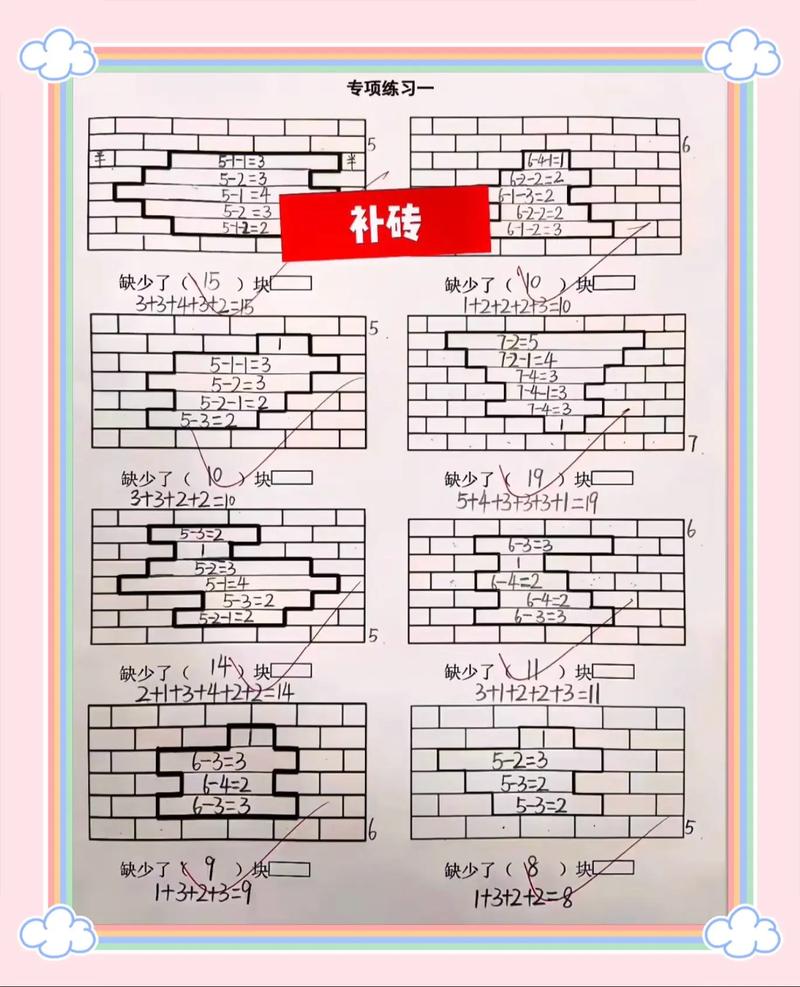 专项练习一
5
半 5-1-1=3 半
5-2=3
5-1=4
5-2=3
5-1-2=2
6
6-4-1=1
6-2-2=2
6-1-3=2
6-2-2=2
6-1-2=3
补砖
缺少了（ 15 ）块
3+3+4+3+2=15
缺少了（ 10 ）块
1+2+2+2+3=10
5
1
5-1-1=3
5-2=3
5-2-1=2
5-3=2
7-2=5
7-2-1=4
7-4=3
7-4-1=3
7-4=3
1
7
缺少了（ 10 ）块
3+3+2+2=10
缺少了（ 19 ）块
5+4+3+3+3+1=19
5-3=2
1
5-2=3
5-1=4
5-3=2
5-2-1=2
5
6
6-3=3
1
6-4=2
6-4=2
6-3=3
缺少了（ 14 ）块
2+1+3+4+2+2=14
缺少了（ 11 ）块
3+1+2+2+3=11
1
6-3=3
6-4=2
6-3=3
6
1
5-2=3
5-3=2
5-3=2
5
缺少了（ 9 ）块
1+3+2+3=9
缺少了（ 8 ）块
1+3+2+2=8